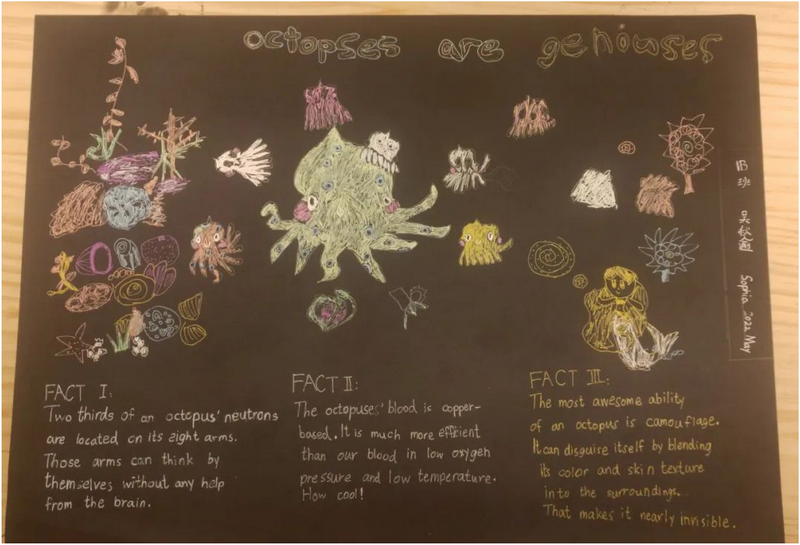 octopses are geniouses
班
Sophia 2022 May
FACT I:
Two thirds of an octopus' neutrons
are located on its eight arms.
Those arms can think by
themselves without any help
from the brain.
FACT II:
The octopuses' blood is copper-
based. It is much more efficient
than our blood in low oxygen
pressure and low temperature.
How cool!
FACT III:
The most awesome ability
of an octopus is camouflage.
It can disguise itself by blending
its color and skin texture
into the surroundings.
That makes it nearly invisible.